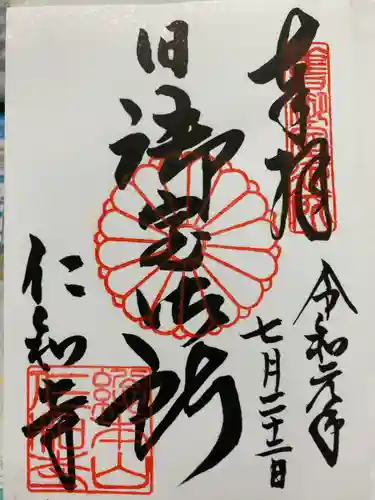 奉拝
令和元年
七月二十二日
旧御室御所
仁和寺